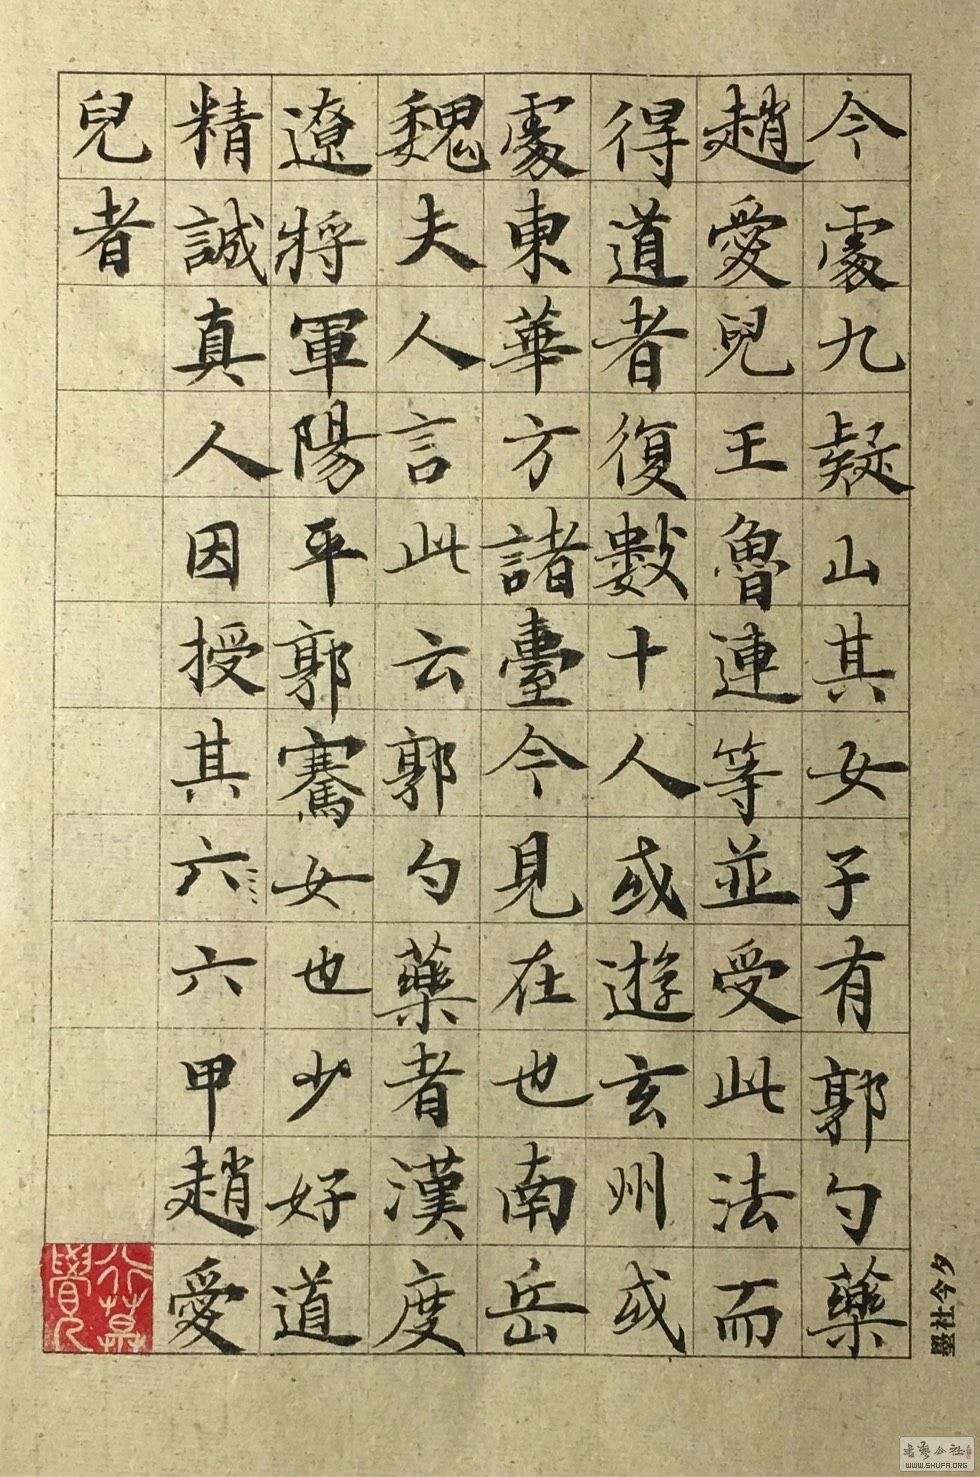 今處九疑山其女子有郭勺藥
趙愛兒王魯連等並受此法而
得道者復數十人或遊玄州或
處東華方諸臺今見在也南岳
魏夫人言此云郭勺藥者漢度
遼將軍陽平郭騫女也少好道
精誠真人因授其六六甲趙愛
兒者
墨社今夕
書藝公社
WWW.SHUFA.ORG